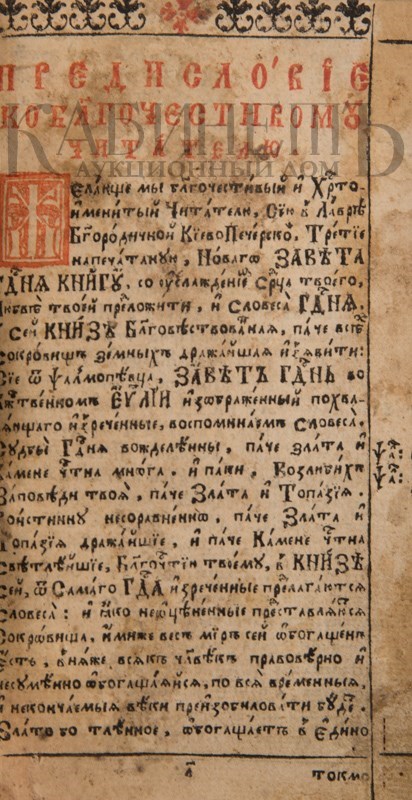 ПРЕДИСЛО́ВІЕ
КО БЛ҃ГОЧЕСТИ́ВОМꙊ
ЧИТА́ТЕЛЮ
КАБИНЕТЪ
АУКЦИОННЫЙ ДОМ
Ж Ела́юще мы̀ благочести́вый и҆ Хр҇то-
имени́тый Чита́телю, Сїю̀ в Ла́врѣ
Бг҃оро́дичной Кі́ево Пече́рско, Тре́тїе
напеча́танꙋю, Но́ваго ЗАВѢ́ТА
ГД҇НЯ КНИ́Гꙋ, со ᲂуслажде́нїе Ср҇ца твоего̀,
Любвѣ̀ твое́й преложи́ти, и҆ Словеса̀ ГД҇НЯ.
Се́й КНИ́ЗѢ Бл҃говѣ́ствованная, па́че всѣ́
сокро́вищъ земны́хъ дража́йшая и҆з̾ѧви́ти:
Сїе ѿ Ѱалмопѣ́вца, ЗАВѢ́ТЪ ГД҇НЬ во
Бж҇твенномъ ЕѴ҃ЛІИ и҆з̾ображе́нный похва-
ля́ющаго и҆зрече́нные, воспомина́емъ Словеса̀.
Сꙋдьбы̀ Гд҇ня вожделѣ́нны, па́че зла́та и҆
Ка́мене че҇тна мно́га. и҆ па́ки, Возлюби́хъ
За́повѣди твоѧ̀, па́че Зла́та и҆ Топа́зїѧ.
Вои́стиннꙋ несоравне́ннѡ, па́че Зла́та и҆
Топа́зїѧ дража́йшїе, и҆ па́че Ка́мене че҇тна
Свѣтлѣ́йшїе, Бл҃гоче҇тїю твоемꙋ̀, в КНИ́ЗѢ
Се́й, ѿ Сама́го ГД҇А и҆зрече́нные предлага́ютсѧ
Словеса̀: и҆ ꙗ҆́ко неѡцѣне́нные представлѧ́ютсѧ
Сокро́вища, и҆́миже ве́сь мі́ръ се́й ѡбогаще́нъ
Е҆́сть, в нѧ́же всѧ́къ чл҃вѣкъ правовѣ́рно и҆
несꙋмѣ́нно ѡбогаща́ѧйсѧ, по всѧ̀ временны́ѧ,
и҆ нескончае́мыѧ вѣ́ки преизоби́ловати бꙋ́де.
Зла́то бо тлѣ́нное, ѡбогаща́етъ в Е҆ди́но
токмѡ